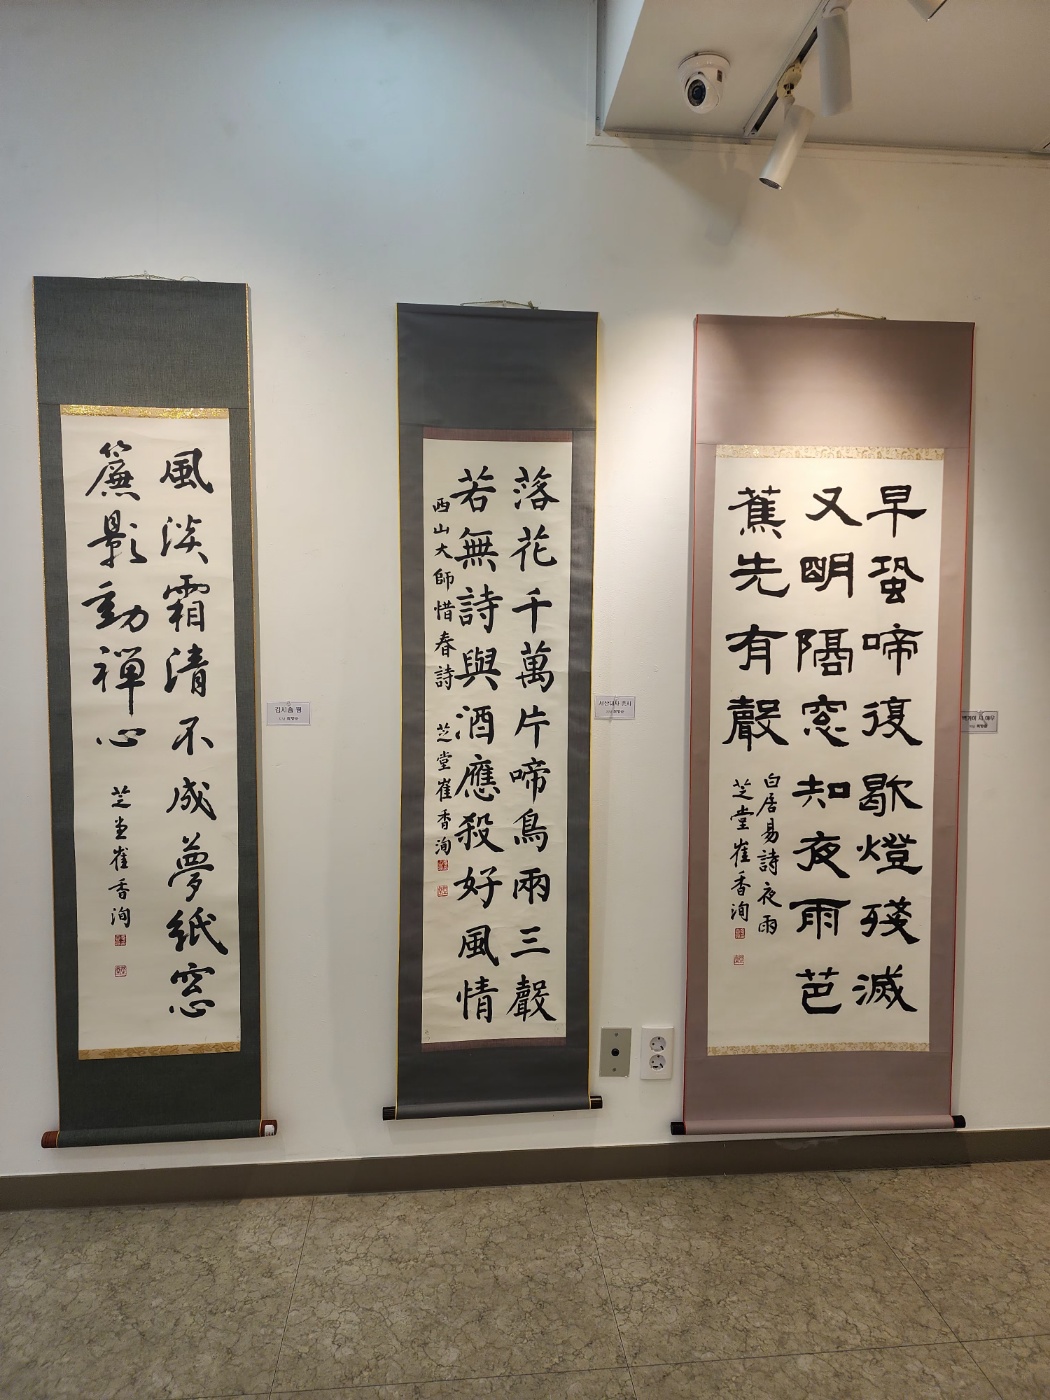 風淡霜清不成夢紙窓
簾影動禪心
芝堂崔香洵
落花千萬片啼鳥兩三聲
若無詩與酒應殺好風情
西山大師惜春詩 芝堂崔香洵
早蛩啼復歇燈殘滅
又明隔窓知夜雨芭
蕉先有聲
白居易詩夜雨
芝堂崔香洵